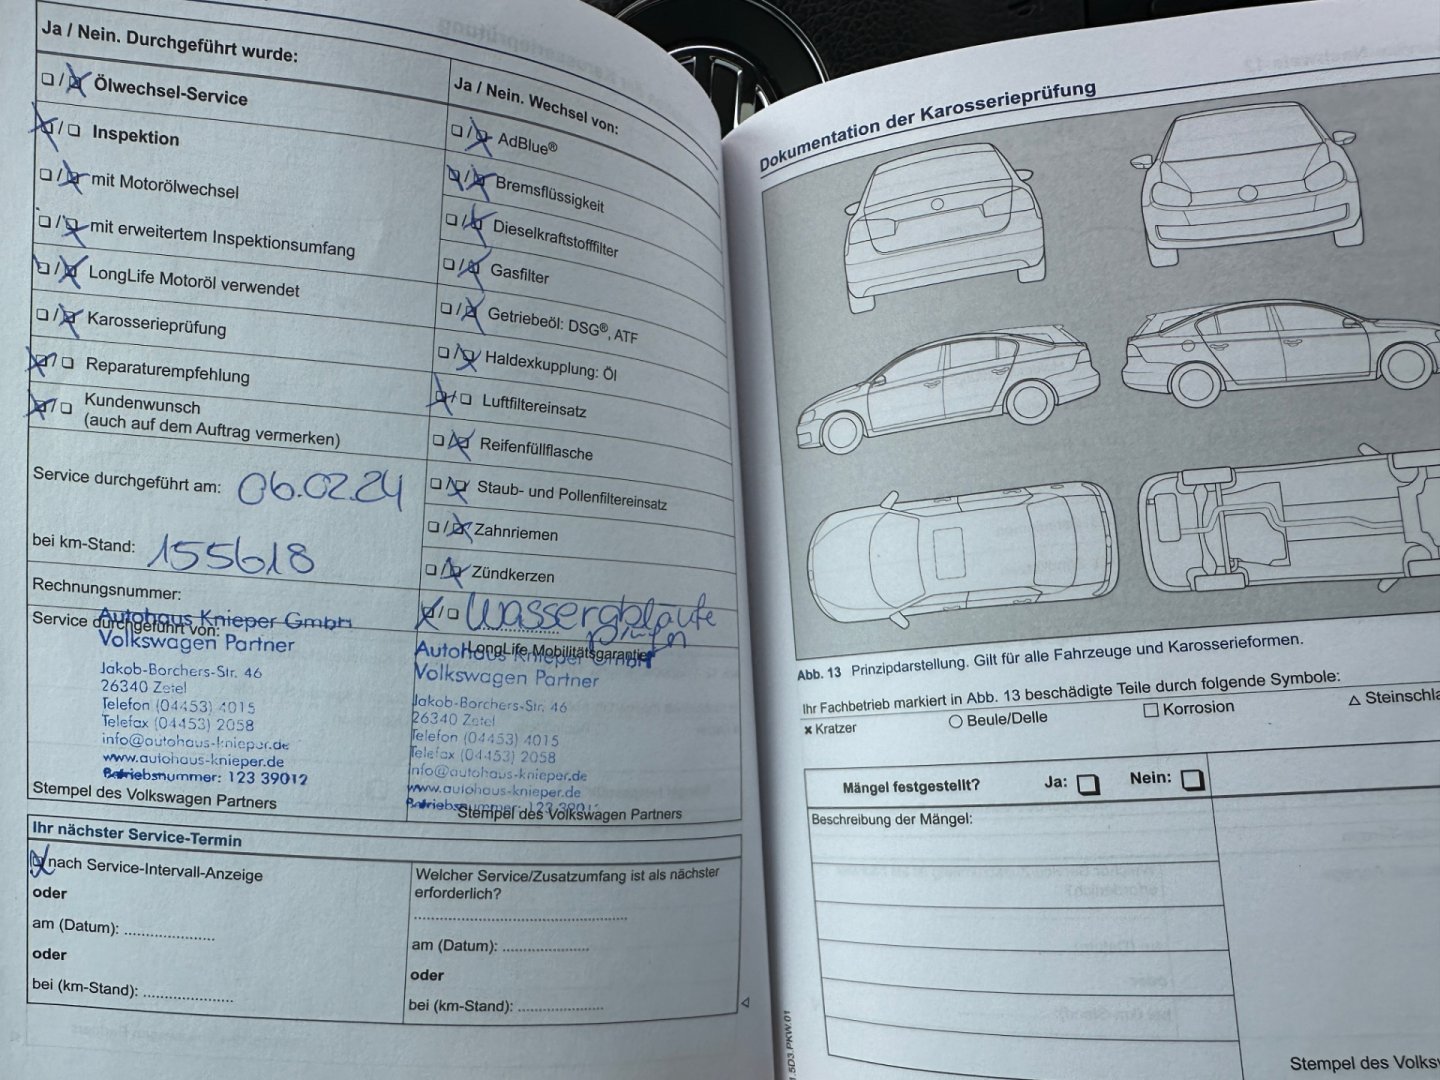 Ja / Nein. Durchgeführt wurde:
Ölwechsel-Service
Inspektion
mit Motorölwechsel
mit erweitertem Inspektionsumfang
LongLife Motoröl verwendet
Karosserieprüfung
Reparaturempfehlung
Kundenwunsch
(auch auf dem Auftrag vermerken)
Service durchgeführt am: 06.02.24
bei km-Stand: 155618
Rechnungsnummer:
Service durchgeführt von:
Autohaus Knieper GmbH
Volkswagen Partner
Jakob-Borchers-Str. 46
26340 Zetel
Telefon (04453) 4015
Telefax (04453) 2058
info@autohaus-knieper.de
www.autohaus-knieper.de
Betriebsnummer: 123 39012
Stempel des Volkswagen Partners
Ja / Nein. Wechsel von:
AdBlue®
Bremsflüssigkeit
Dieselkraftstofffilter
Gasfilter
Getriebeöl: DSG®, ATF
Haldexkupplung: Öl
Luftfiltereinsatz
Reifenfüllflasche
Staub- und Pollenfiltereinsatz
Zahnriemen
Zündkerzen
Wasserabläufe
prüfen
LongLife Mobilitätsgarantie
Autohaus Knieper GmbH
Volkswagen Partner
Jakob-Borchers-Str. 46
26340 Zetel
Telefon (04453) 4015
Telefax (04453) 2058
info@autohaus-knieper.de
www.autohaus-knieper.de
Betriebsnummer: 123 3901
Stempel des Volkswagen Partners
Ihr nächster Service-Termin
nach Service-Intervall-Anzeige
oder
am (Datum): ......................
oder
bei (km-Stand): ......................
Welcher Service/Zusatzumfang ist als nächster
erforderlich?
am (Datum): .....................
oder
bei (km-Stand): .....................
Dokumentation der Karosserieprüfung
Abb. 13 Prinzipdarstellung. Gilt für alle Fahrzeuge und Karosserieformen.
Ihr Fachbetrieb markiert in Abb. 13 beschädigte Teile durch folgende Symbole:
× Kratzer ○ Beule/Delle □ Korrosion △ Steinschla
Mängel festgestellt? Ja: Nein:
Beschreibung der Mängel:
Stempel des Volksw
1.5D3.PKW.01